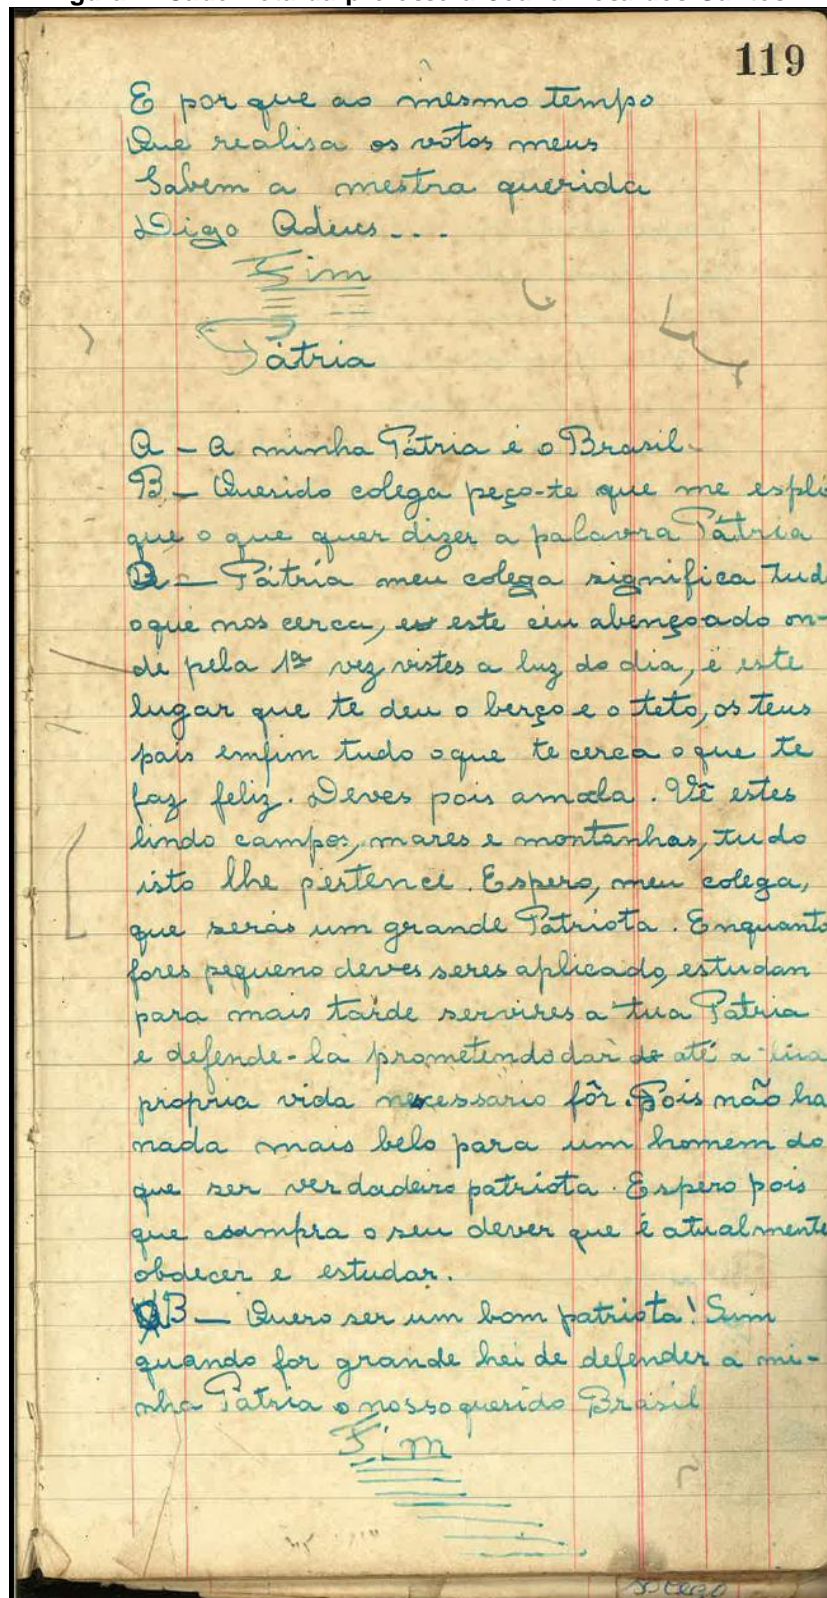 119
E por que ao mesmo tempo
Que realisa os votos meus
Sabem a mestra querida
Digo Adeus...
Fim
Pátria
A - A minha Pátria é o Brasil.
B - Querido colega peço-te que me espli
que o que quer dizer a palavra Pátria
A - Pátria meu colega significa tud
oque nos cerca, este céu abençoado on-
de pela 1ª vez vistes a luz do dia, é este
lugar que te deu o berço e o teto, os teus
pais emfim tudo oque te cerca oque te
faz feliz. Deves pois amala. Vê estes
lindo campos, mares e montanhas, tudo
isto lhe pertence. Espero, meu colega,
que serás um grande Patriota. Enquanto
fores pequeno deves seres aplicado, estudan
para mais tarde servires a tua Patria
e defende-la prometendo dar até a tua
propria vida necessario fôr. Pois não ha
nada mais belo para um homem do
que ser verdadeiro patriota. Espero pois
que cumpra o seu dever que é atualmente
obdecer e estudar.
B - Quero ser um bom patriota! Sim
quando for grande hei de defender a mi-
nha Pátria o nosso querido Brasil
Fim